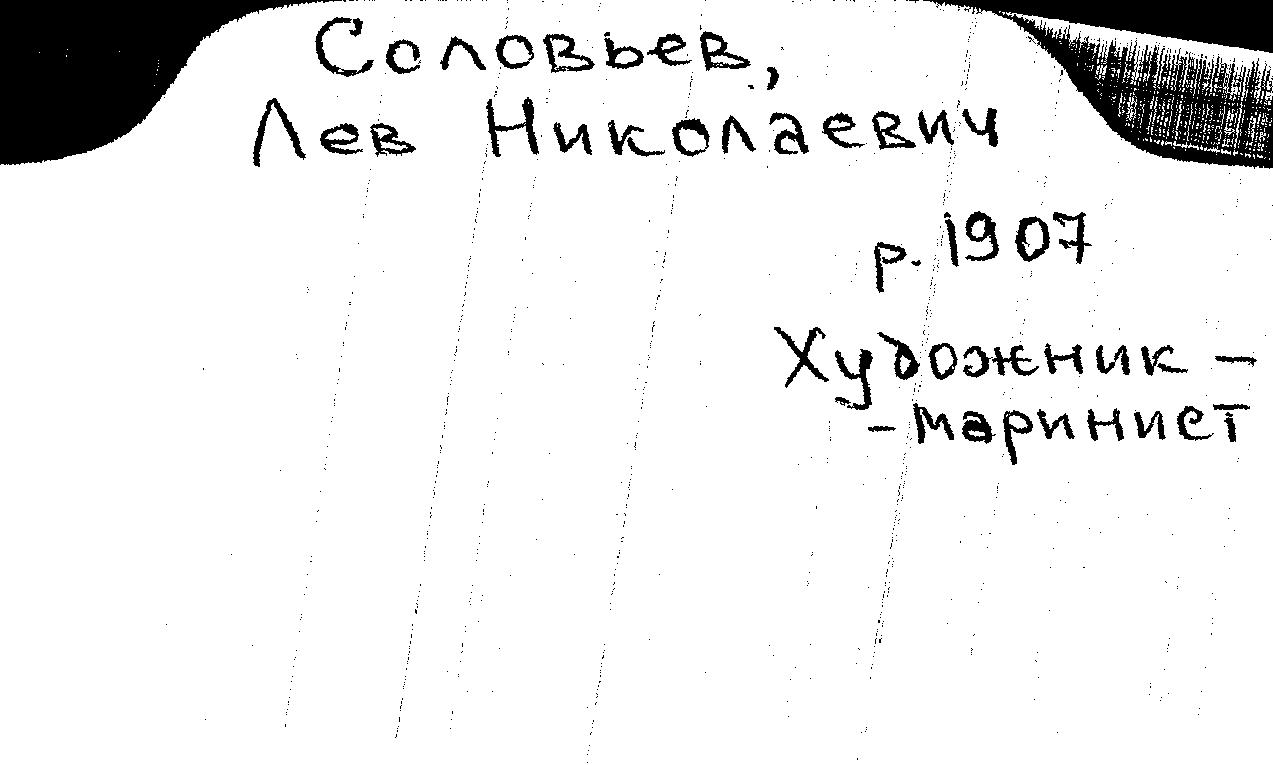 Соловьев,
Лев Николаевич
р. 1907
Художник -
- маринист